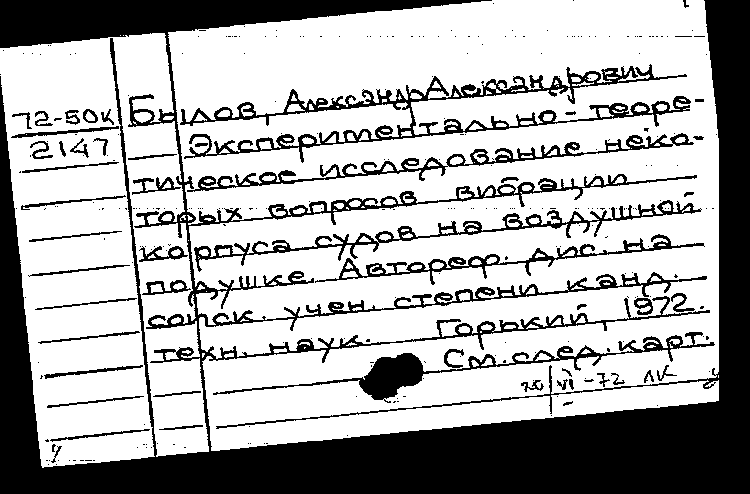 72-50к
2147
Былов, Александр Александрович
Экспериментально-теоре-
тическое исследование неко-
торых вопросов вибрации
корпуса судов на воздушной
подушке. Автореф. дис. на
соиск. учен. степени канд.
техн. наук. Горький, 1972.
См. след. карт.
20/VI-72 ЛК
у